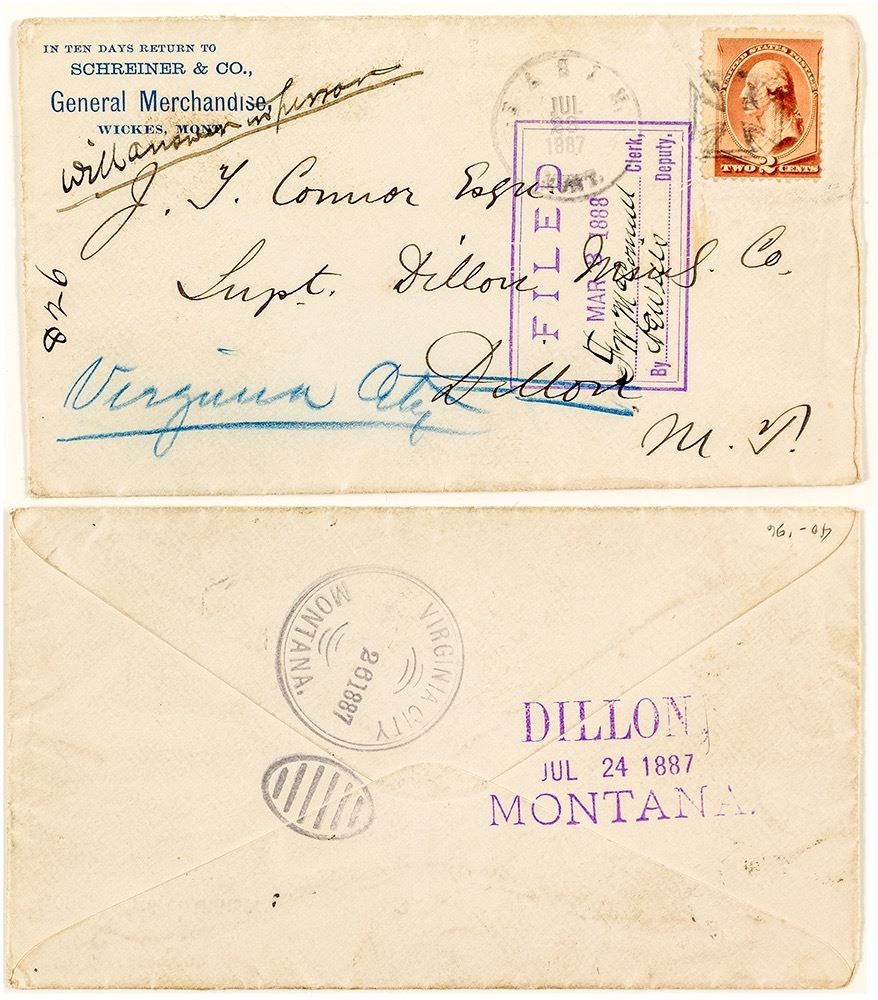 IN TEN DAYS RETURN TO
SCHREINER & CO.,
General Merchandise,
WICKES, MONT.
will answer in person
JUL
1887
MONT.
UNITED STATES POSTAGE
TWO 2 CENTS
J. T. Connor Esqr.
Supt. Dillon Mng. Co.
Dillon
M. T.
Virginia City
928
FILED
MAR 3 1888
Clerk,
By Deputy.
40-'96
VIRGINIA CITY
MONTANA.
26 1887
DILLON,
JUL 24 1887
MONTANA.